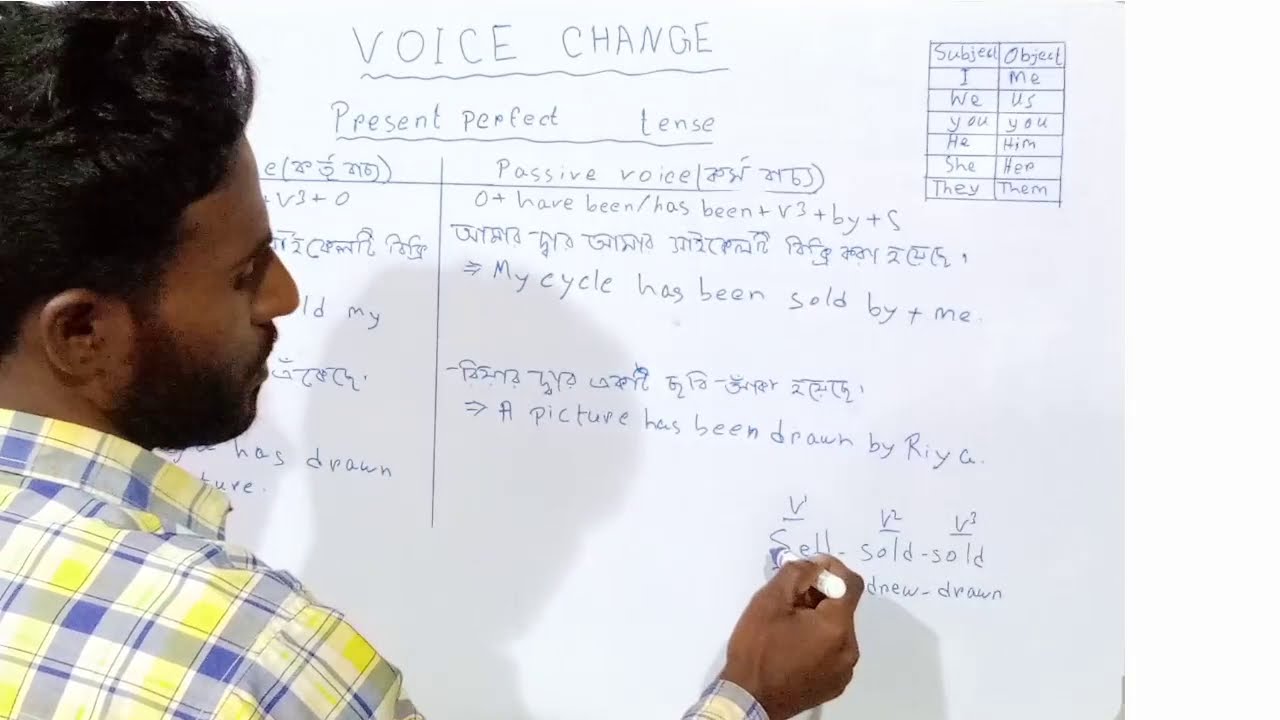 VOICE CHANGE
Present perfect tense
Subject Object
I Me
We us
you you
He Him
She Her
They Them
e(কর্তৃ বাচ্য)
+ V3 + O
সাইকেলটি বিক্রি
ld my
এঁকেছে।
has drawn
ture.
Passive voice(কর্ম বাচ্য)
O + have been/has been + V3 + by + S
আমার দ্বার আমার সাইকেলটি বিক্রি করা হয়েছে।
⇒ My cycle has been sold by + me.
রিয়ার দ্বার একটি ছবি আঁকা হয়েছে।
⇒ A picture has been drawn by Riya.
V1 V2 V3
Sell - sold - sold
drew - drawn